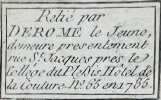 Relié par
DEROME le Jeune,
demeure presentement
rue St. Jacques près le
Collège du Plessis Hôtel de
la Couture No. 65 en 1785.